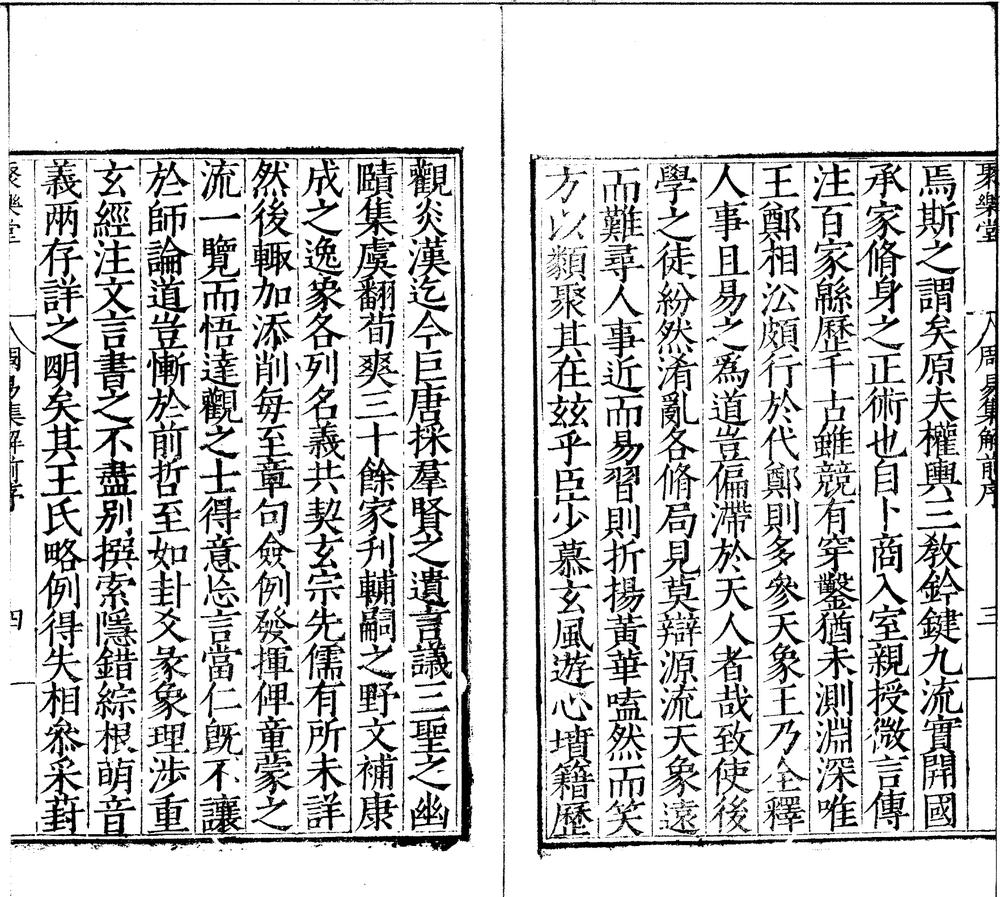 聚樂堂 周易集解前序 三
焉斯之謂矣原夫權輿三教鈐鍵九流實開國
承家脩身之正術也自卜商入室親授微言傳
注百家緜歷千古雖競有穿鑿猶未測淵深唯
王鄭相沿頗行於代鄭則多參天象王乃全釋
人事且易之為道豈偏滯於天人者哉致使後
學之徒紛然淆亂各脩局見莫辯源流天象遠
而難尋人事近而易習則折揚黃華嗑然而笑
方以類聚其在玆乎臣少慕玄風遊心墳籍歷
觀炎漢迄今巨唐採羣賢之遺言議三聖之幽
賾集虞翻荀爽三十餘家刋輔嗣之野文補康
成之逸象各列名義共契玄宗先儒有所未詳
然後輙加添削每至章句僉例發揮俾童蒙之
流一覽而悟達觀之士得意忘言當仁旣不讓
於師論道豈慚於前哲至如卦爻彖象理涉重
玄經注文言書之不盡別撰索隱錯綜根萌音
義兩存詳之明矣其王氏略例得失相叅采葑
聚樂堂 周易集解前序 四